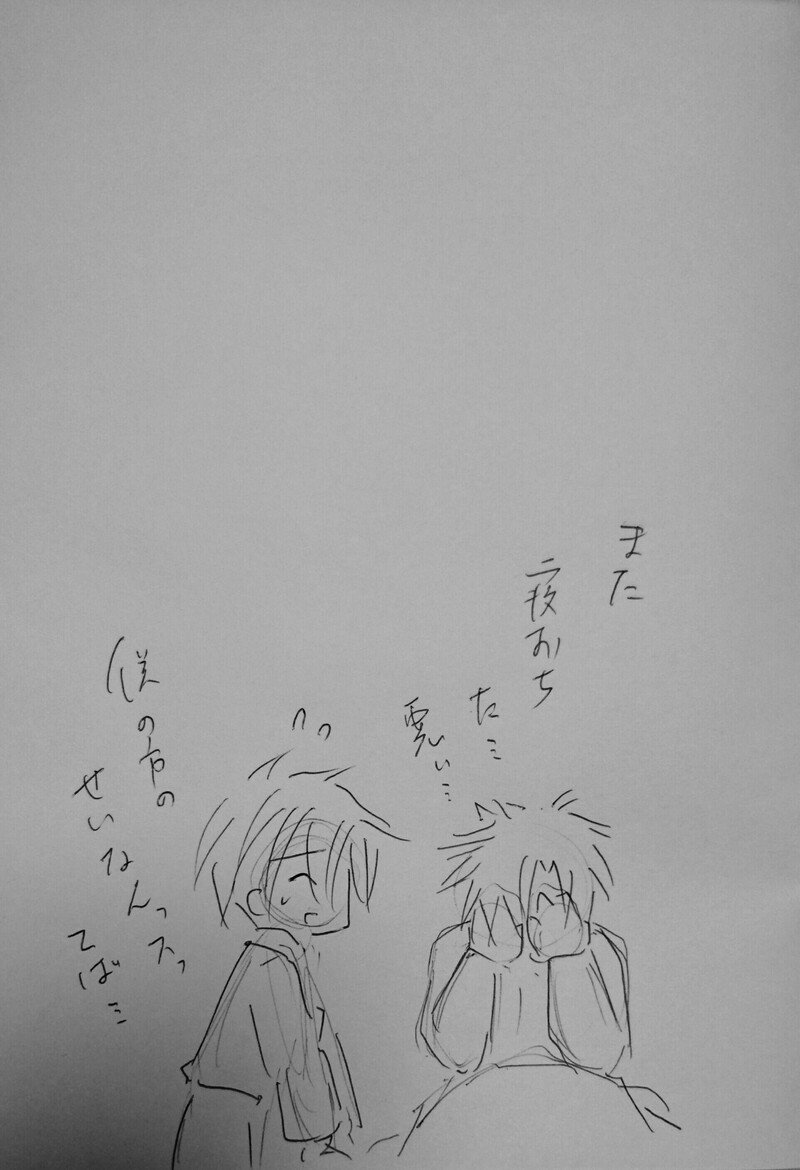 また
寝おち
た…
悪い…
僕の方の
せいなんっスっ
てば…